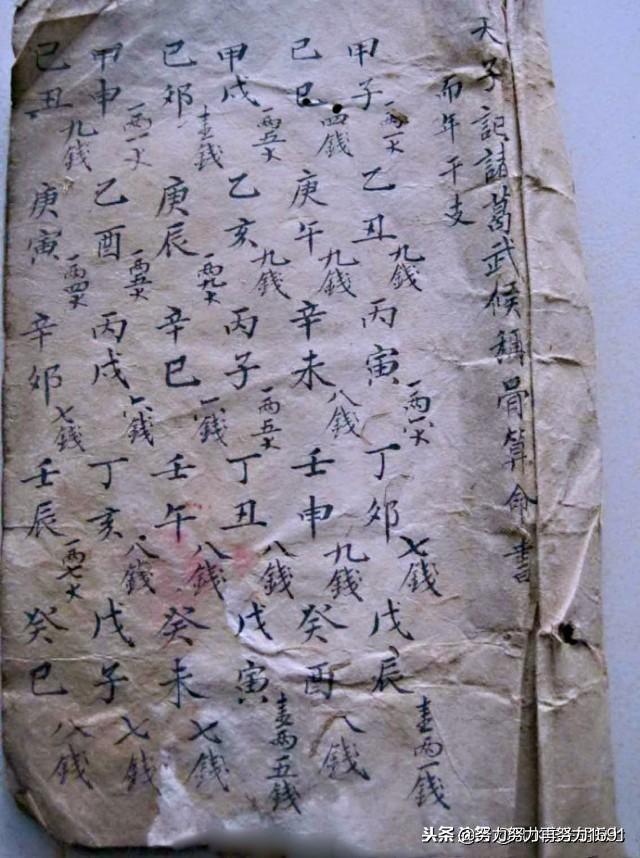 天子記諸葛武候稱骨算命書
而年干支
甲子 一両一 乙丑 九錢 丙寅 一両 丁卯 七錢 戊辰 壹両一錢
己巳 四錢 庚午 九錢 辛未 八錢 壬申 九錢 癸酉 八錢
甲戌 一両五 乙亥 九錢 丙子 一両五 丁丑 八錢 戊寅 壹両五錢
己卯 壹錢 庚辰 一両九 辛巳 錢 壬午 八錢 癸未 七錢
甲申 一両一 乙酉 一両五 丙戌 六錢 丁亥 八錢 戊子 七錢
己丑 九錢 庚寅 一両四 辛卯 七錢 壬辰 一両七 癸巳 八錢
头条 @努力努力再努力